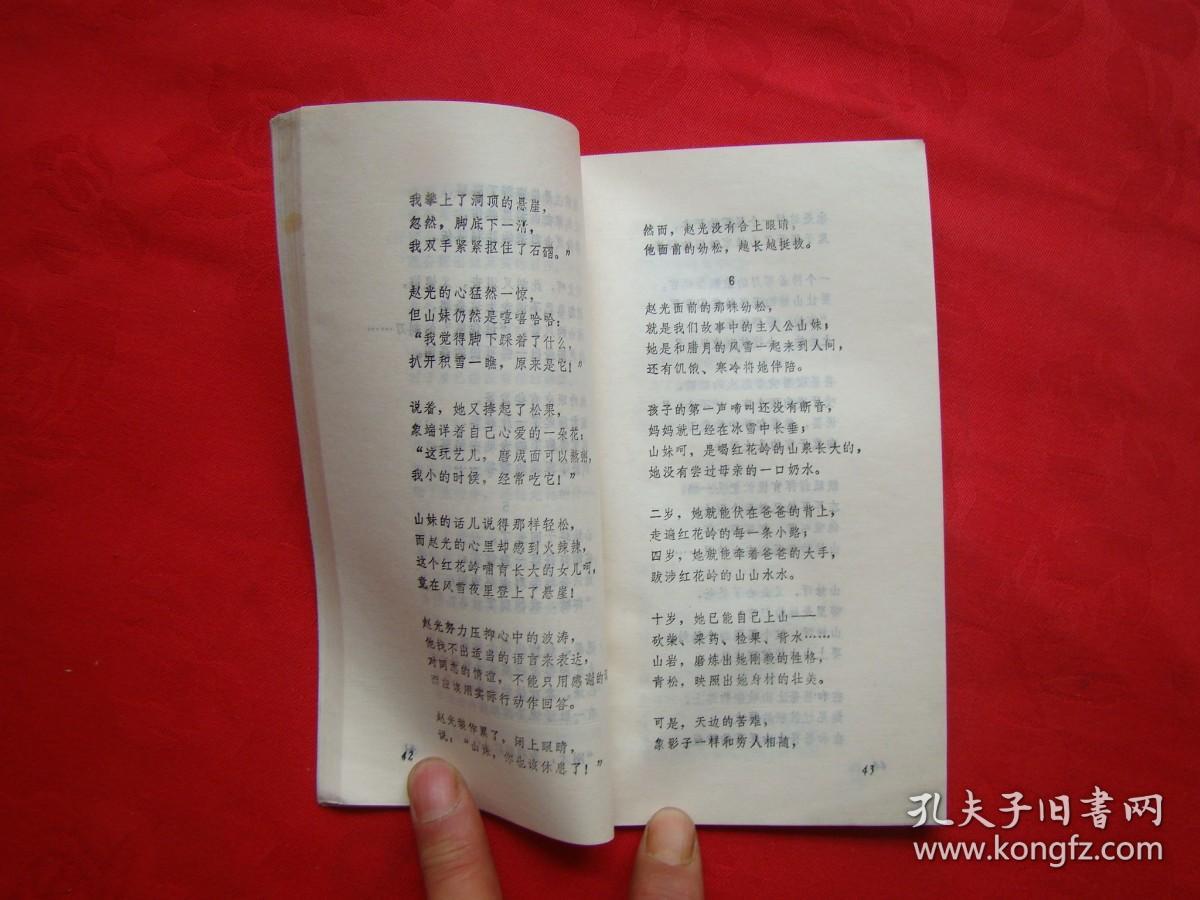 我攀上了洞顶的悬崖，
忽然，脚底下一滑，
我双手紧紧抠住了石碴。”
赵光的心猛然一惊，
但山妹仍然是嘻嘻哈哈：
“我觉得脚下踩着了什么，
扒开积雪一瞧，原来是它！”
说着，她又捧起了松果，
象端详着自己心爱的一朵花：
“这玩艺儿，磨成面可以熬粥，
我小的时侯，经常吃它！”
山妹的话儿说得那样轻松，
而赵光的心里却感到火辣辣，
这个红花岭哺育长大的女儿呵，
竟在风雪夜里登上了悬崖！
赵光努力压抑心中的波涛，
他找不出适当的语言来表达，
对同志的情谊，不能只用感谢的
而应该用实际行动作回答。
赵光装作累了，闭上眼睛，
说：“山妹，你也该休息了！”
42
然而，赵光没有合上眼睛，
他面前的幼松，越长越挺拔。
6
赵光面前的那株幼松，
就是我们故事中的主人公山妹；
她是和腊月的风雪一起来到人间，
还有饥饿、寒冷将她伴陪。
孩子的第一声啼叫还没有断音，
妈妈就已经在冰雪中长垂；
山妹呵，是喝红花岭的山泉长大的，
她没有尝过母亲的一口奶水。
二岁，她就能伏在爸爸的背上，
走遍红花岭的每一条小路；
四岁，她就能牵着爸爸的大手，
跋涉红花岭的山山水水。
十岁，她已能自己上山——
砍柴、采药、检果、背水……
山岩，磨炼出她刚毅的性格，
青松，映照出她身材的壮美。
可是，天边的苦难，
象影子一样和穷人相随，
43
孔夫子旧書网
www.kongfz.com